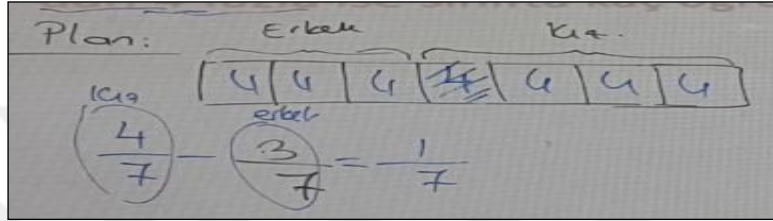 Plan: Erkek Kız.
4 4 4 4 4 4 4
Kız erkek
4/7 - 3/7 = 1/7